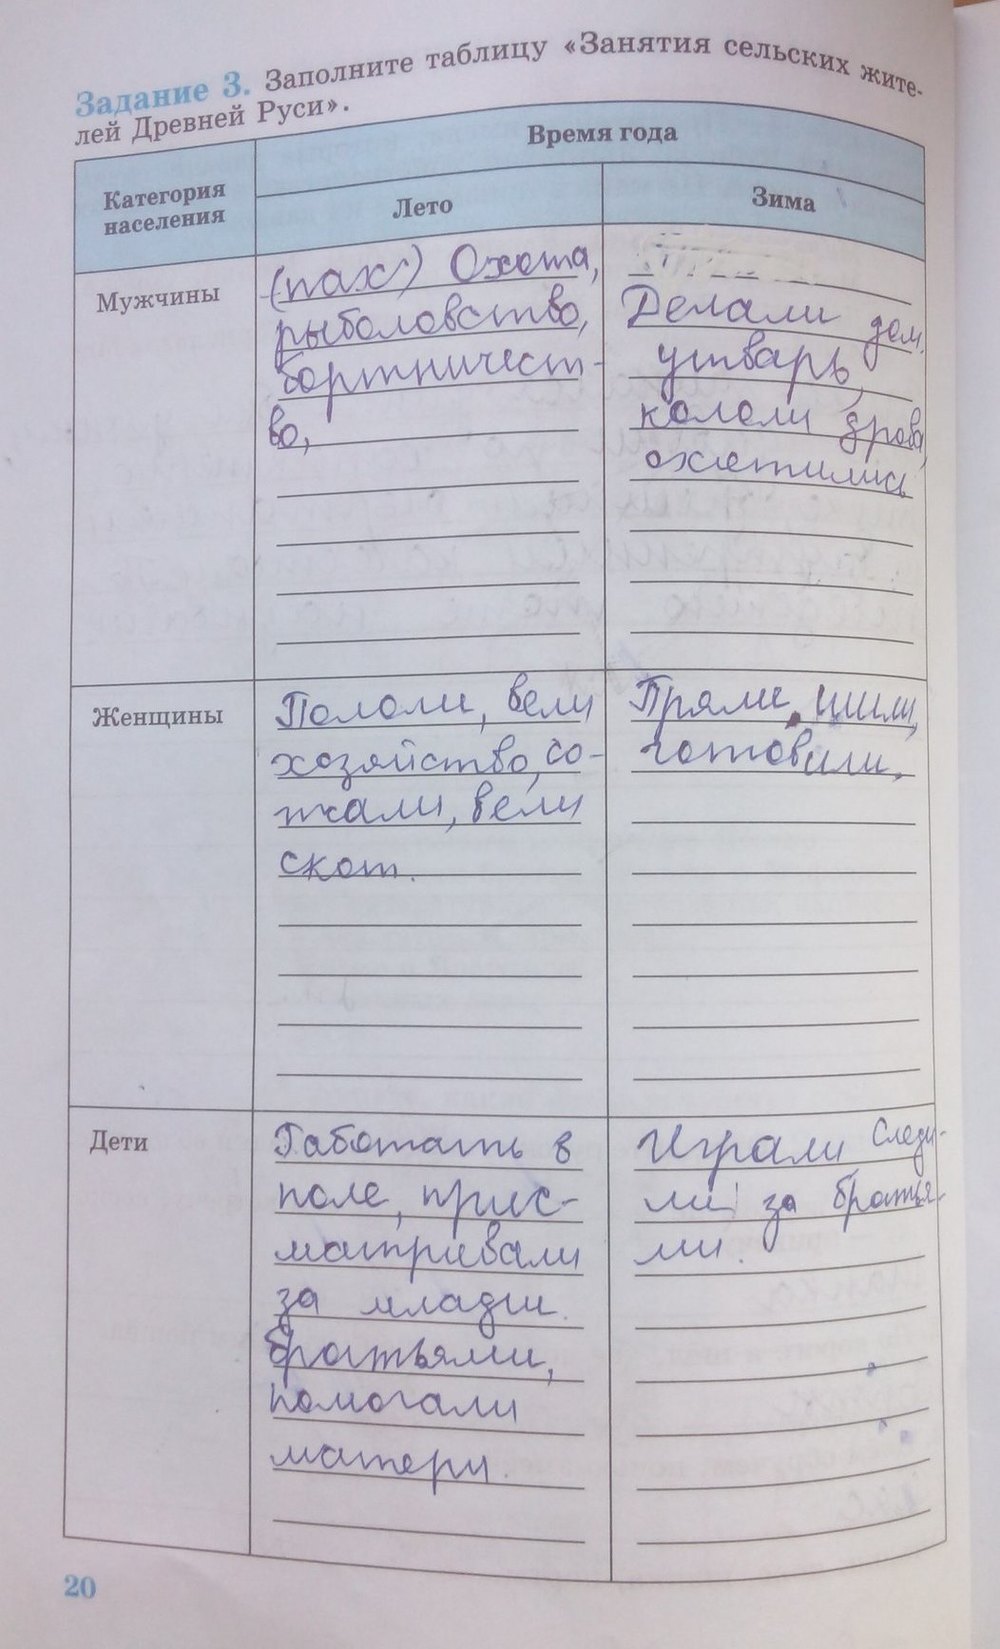 Задание 3. Заполните таблицу «Занятия сельских жите-
лей Древней Руси».
Категория
населения
Время года
Лето
Зима
Мужчины
(пах) Охота,
рыболовство,
бортничест-
во,
Делали дом.
утварь,
кололи дрова,
охотились
Женщины
Пололи, вели
хозяйство, со-
жали, вели
скот.
Пряли, шили,
готовили.
Дети
Работать в
поле, прис-
матривали
за младш.
братьями,
помогали
матери.
Играли следи-
ли за братья-
ми.
20